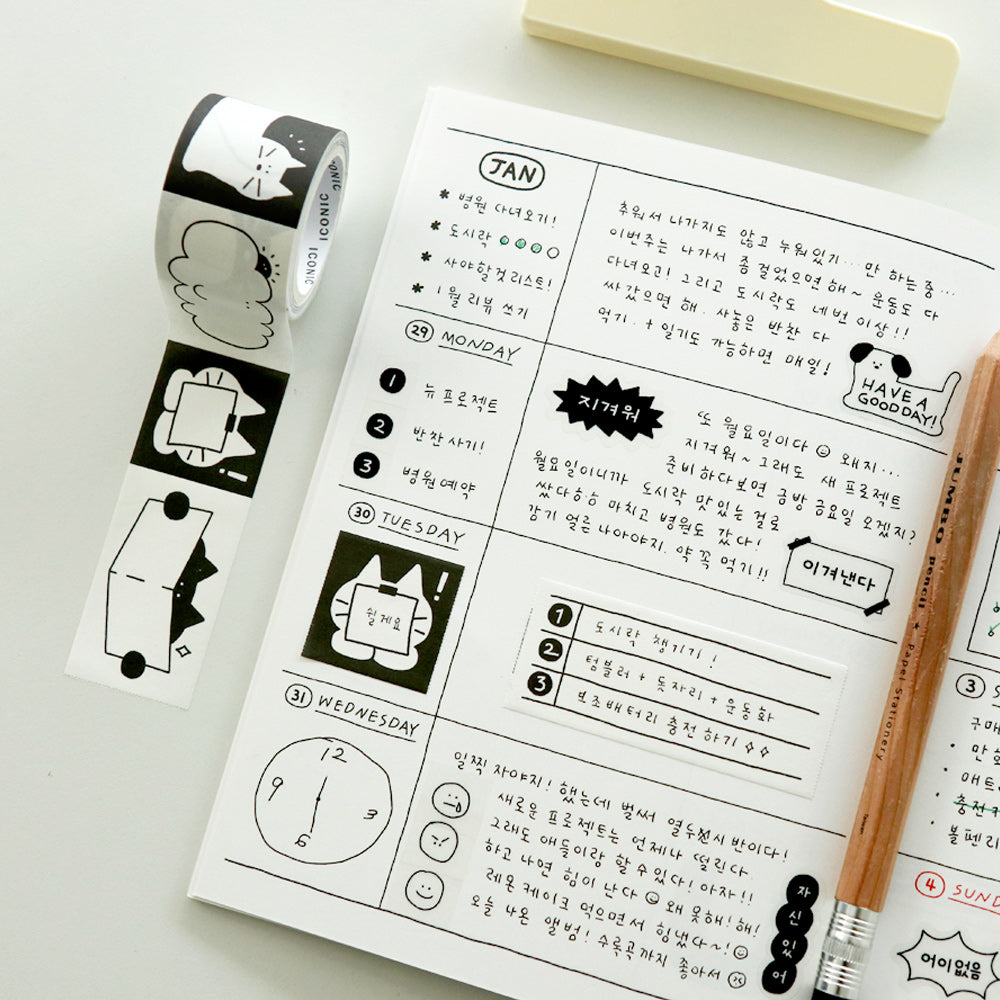 ICONIC ICONIC ICONIC
JAN
* 병원 다녀오기!
* 도시락
* 사야할것리스트!
* 1월 리뷰 쓰기
추워서 나가지도 않고 누워있기... 만 하는중...
이번주는 나가서 좀 걸었으면 해~ 운동도 다
다녀오고! 그리고 도시락도 네번 이상!!
싸갔으면 해. 사놓은 반찬 다
먹기. + 일기도 가능하면 매일!
HAVE A
GOOD DAY!
29 MONDAY
1 뉴 프로젝트
2 반찬 사기!
3 병원예약
지겨워
또 월요일이다 왜지...
지겨워~ 그래도 새 프로젝트
준비하다보면 금방 금요일 오겠지?
월요일이니까 도시락 맛있는 걸로
쌌다ㅎㅎ 마치고 병원도 갔다!
감기 얼른 나아야지. 약 꼭 먹기!!
이겨낸다
30 TUESDAY
쉴게요
1 도시락 챙기기!
2 텀블러 + 돗자리 + 운동화
3 보조배터리 충전하기
31 WEDNESDAY
12
9
3
6
일찍 자야지! 했는데 벌써 열두시 반이다!
새로운 프로젝트는 언제나 떨린다.
그래도 애들이랑 할 수 있다! 아자!!
하고 나면 힘이 난다 왜 못해! 해!
레몬 케이크 먹으면서 힘냈다~!
오늘 나온 앨범! 수록곡까지 좋아서
자
신
있
어
JUMBO pencil + Papel Stationery
3
구매
• 만
• 매트
• 충전
• 볼펜
4 SUND
어이없음